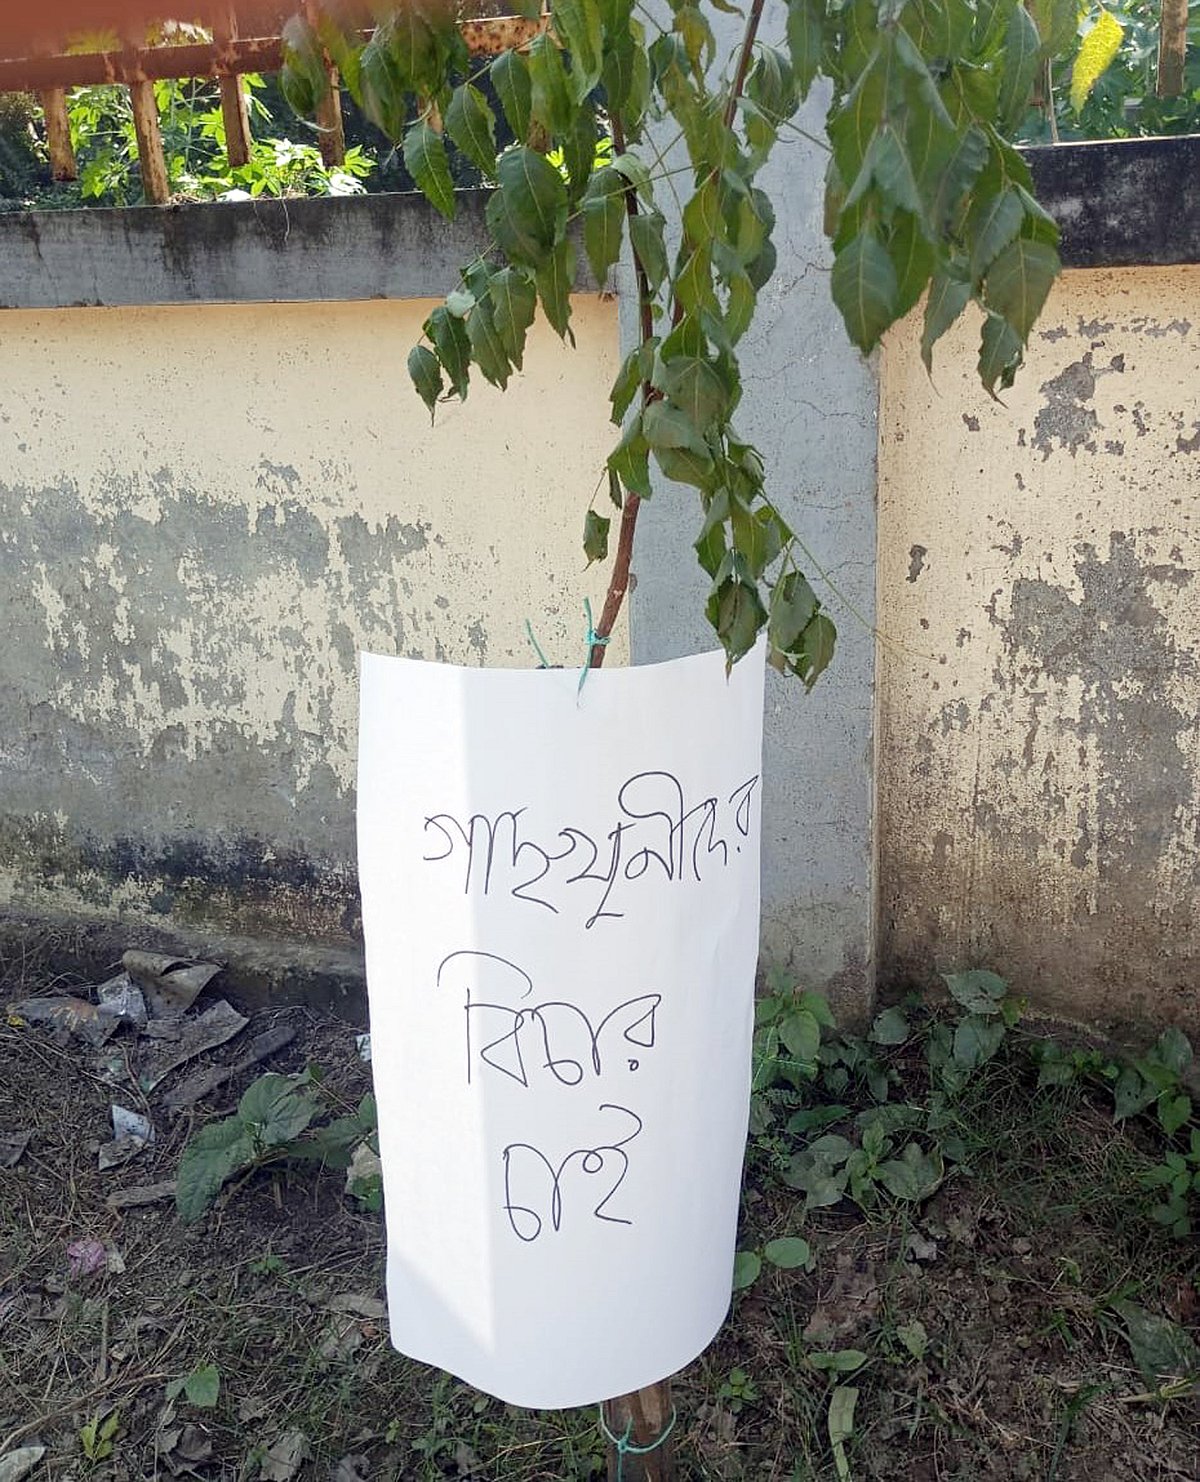 গাছখুনীদের
বিচার
চাই